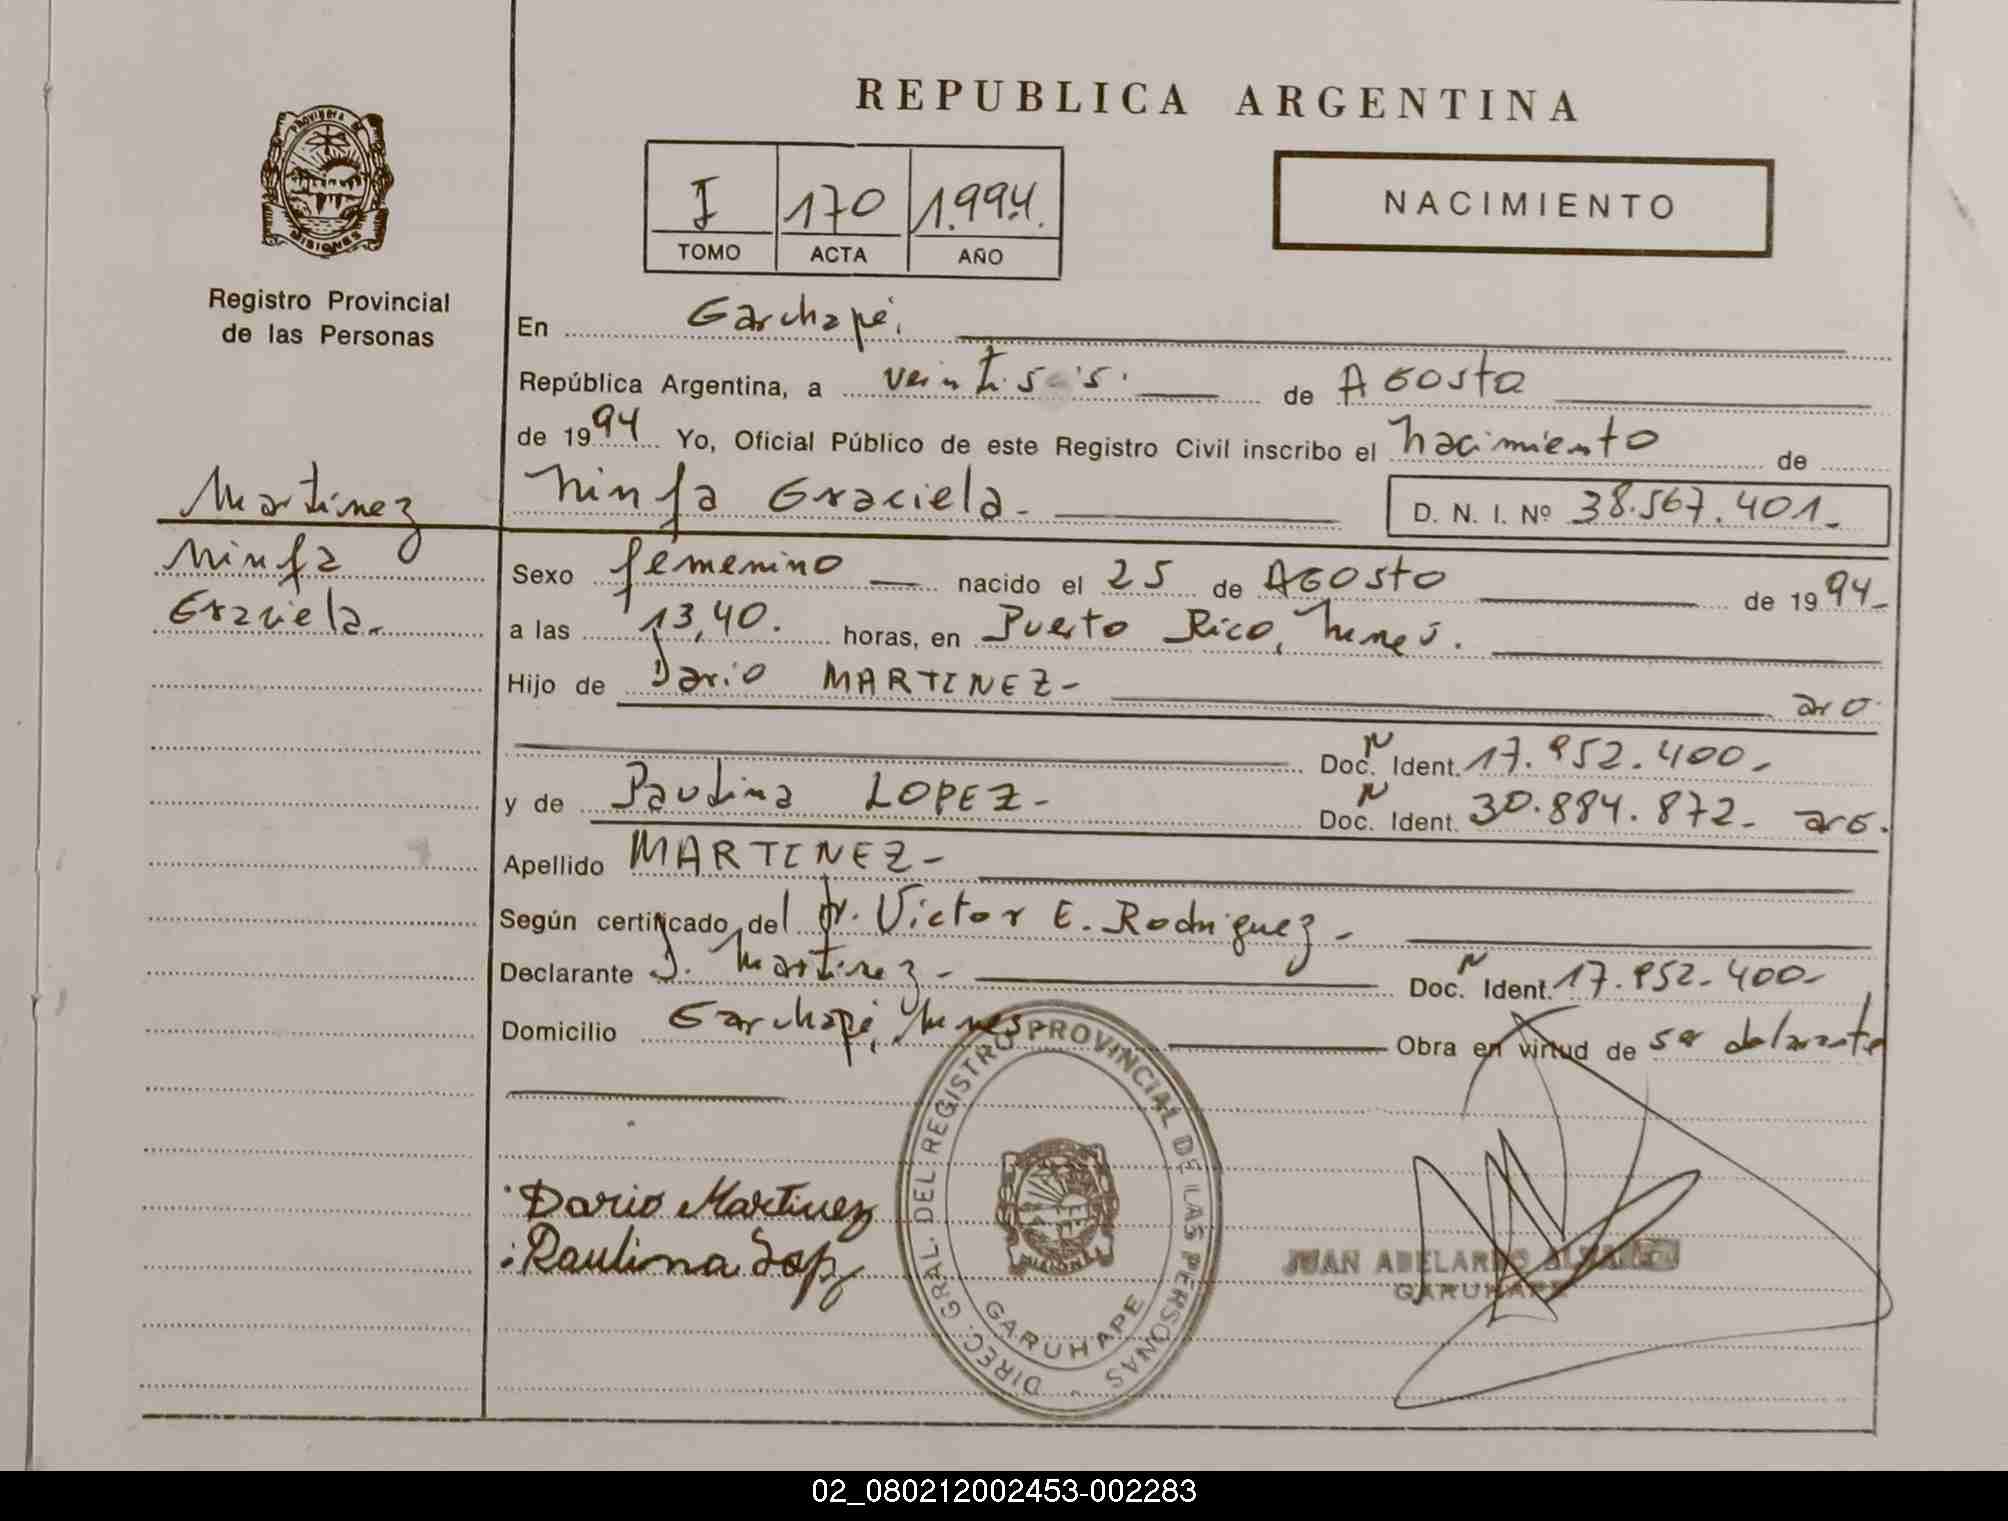 REPUBLICA ARGENTINA
PROVINCIA DE
MISIONES
Registro Provincial
de las Personas
I 170 1.994.
TOMO ACTA AÑO
NACIMIENTO
En Garuhapé.
República Argentina, a veintiseis. de Agosto
de 1994 Yo, Oficial Público de este Registro Civil inscribo el nacimiento de
Ninfa Graciela - D. N. I. Nº 38.567.401-
Martinez
Ninfa
Graciela.
Sexo femenino nacido el 25 de Agosto de 1994-
a las 13,40. horas, en Puerto Rico,
Hijo de Dario MARTINEZ -
Doc. N Ident. 17.952.400-
y de Paulina LOPEZ - Doc. N Ident. 30.884.872- arg.
Apellido MARTINEZ -
Según certificado del Dr. Victor E. Rodriguez -
Declarante D. Martinez - Doc. N Ident. 17.952.400-
Domicilio Garuhapé, Obra en virtud de ser delarante
Dario Martinez
Paulina Lopz
DIREC. GRAL. DEL REGISTRO PROVINCIAL DE LAS PERSONAS
MISIONES
GARUHAPE
JUAN ABELARDO
GARUHAPE
02_080212002453-002283